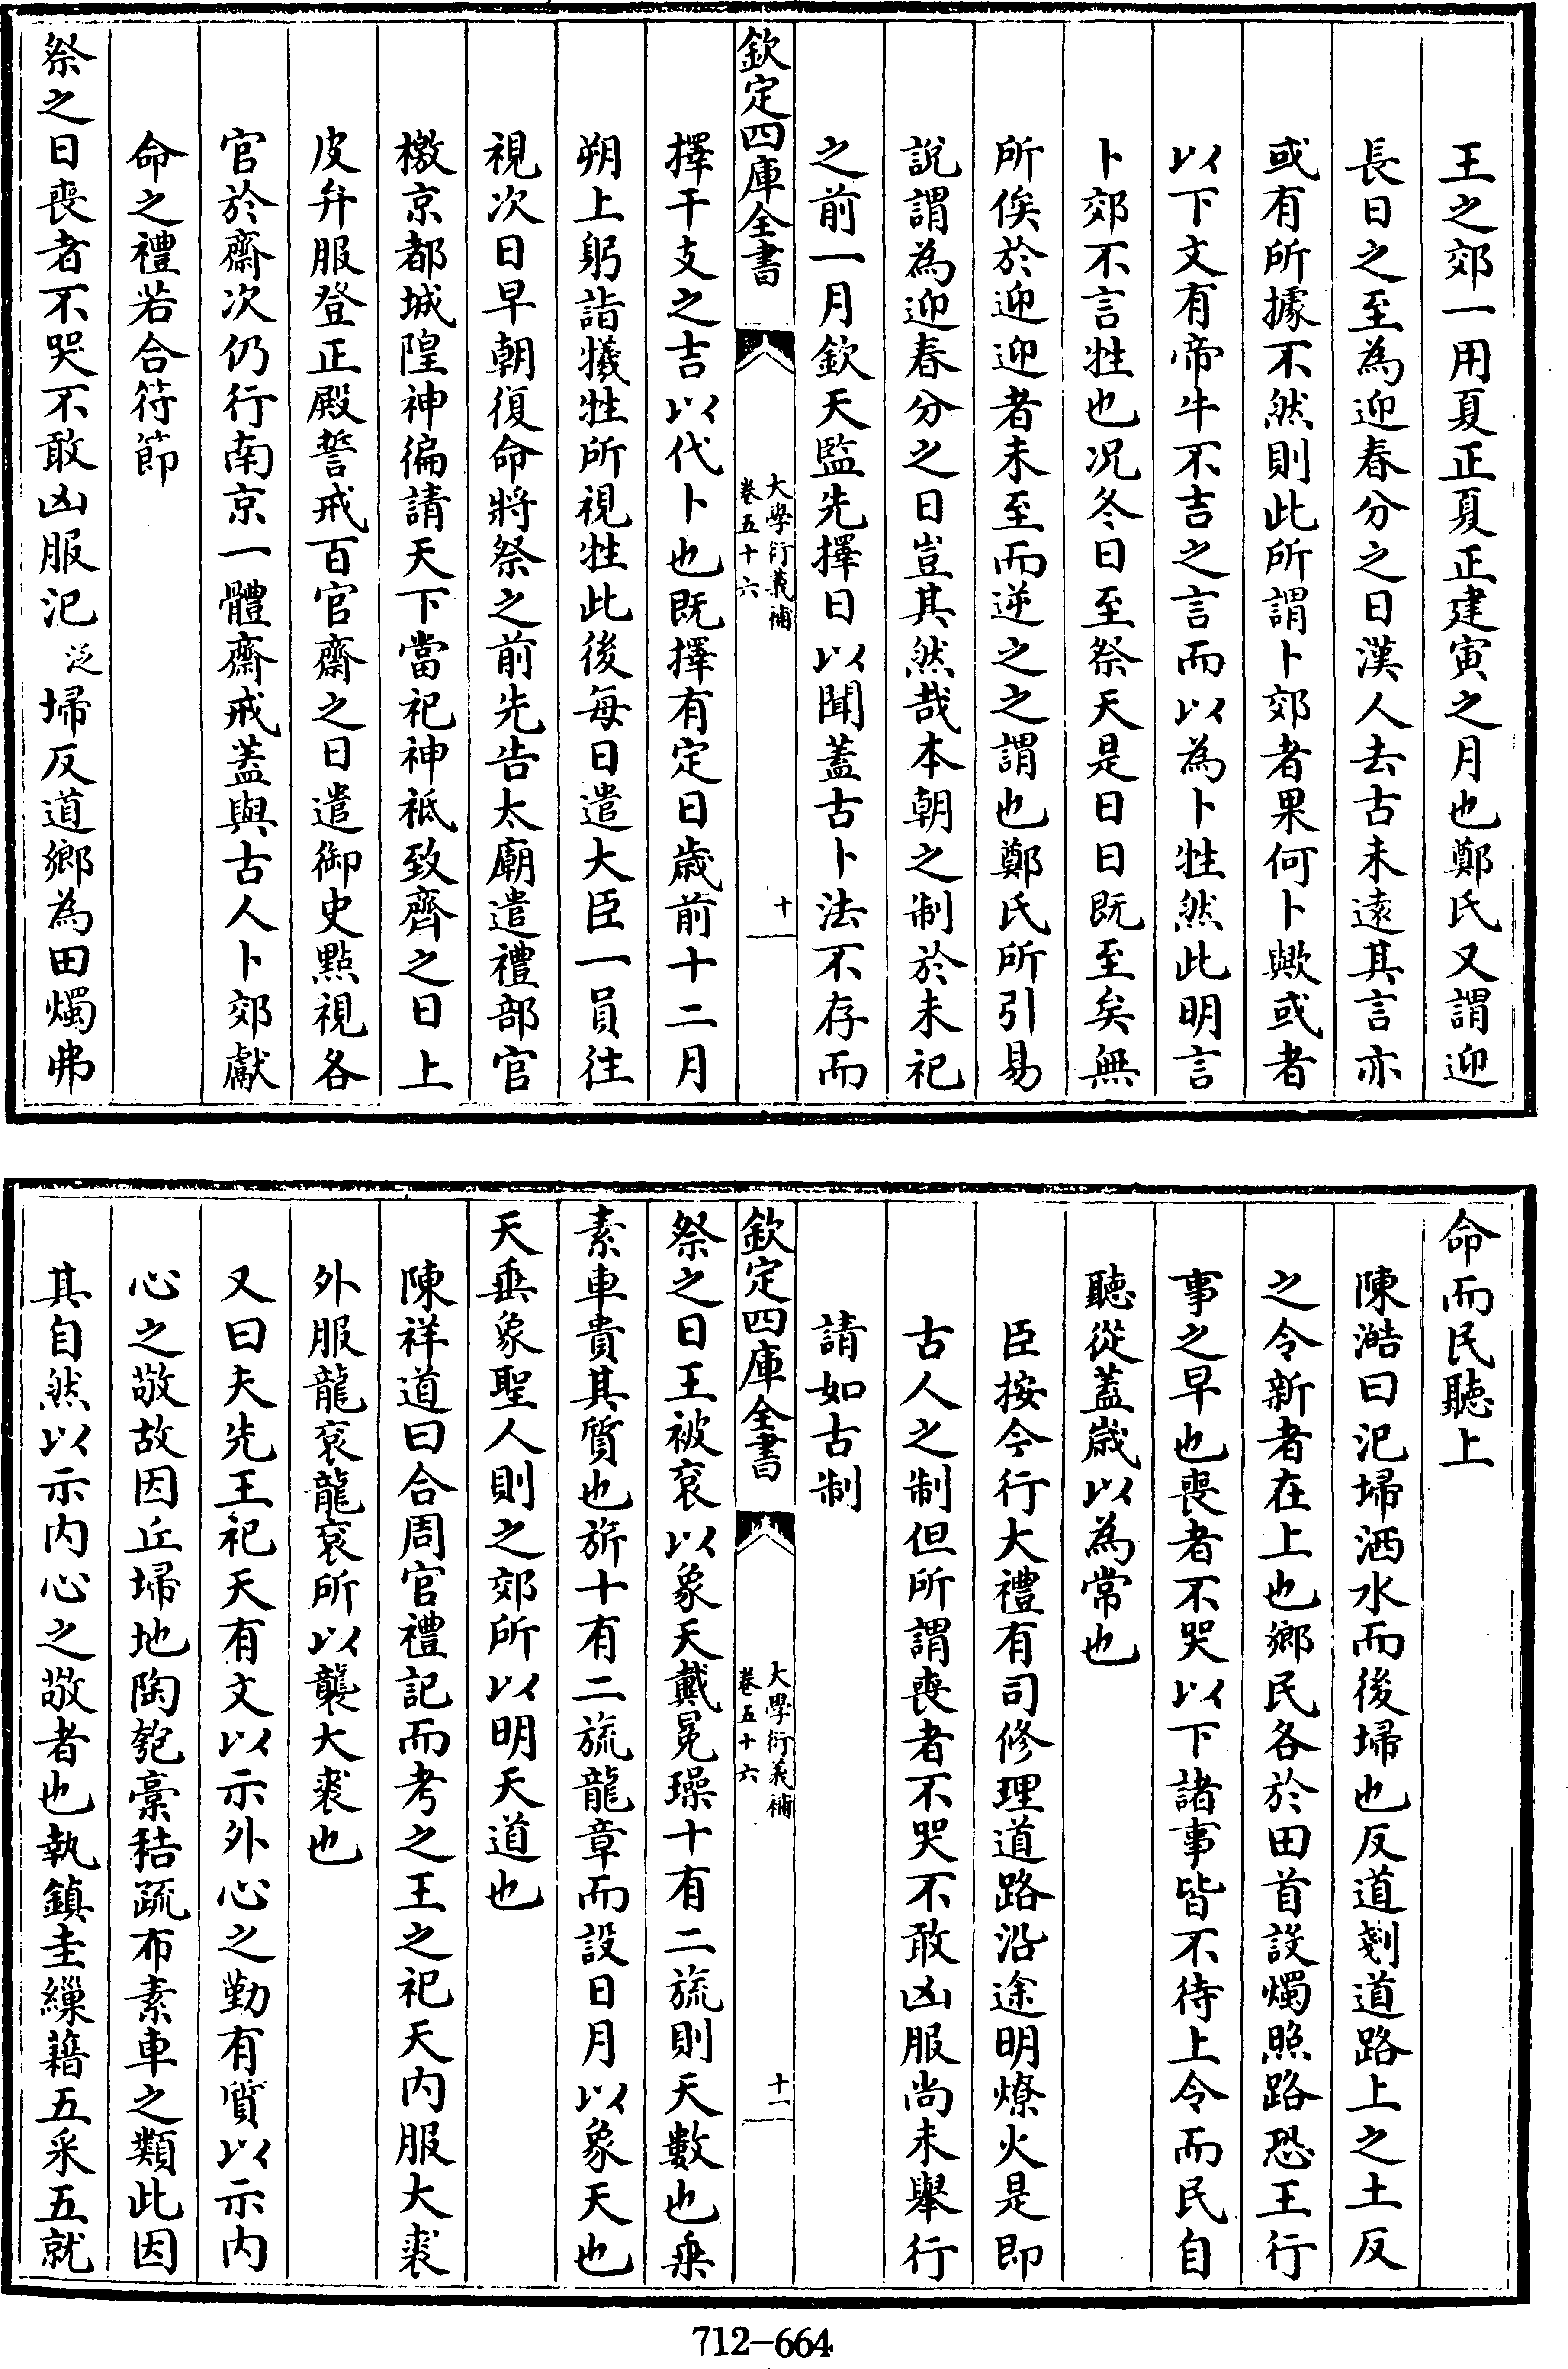 王之郊一用夏正夏正建寅之月也鄭氏又謂迎
長日之至為迎春分之日漢人去古未遠其言亦
或有所據不然則此所謂卜郊者果何卜歟或者
以下文有帝牛不吉之言而以為卜牲然此明言
卜郊不言牲也况冬日至祭天是日日既至矣無
所俟於迎迎者未至而逆之之謂也鄭氏所引易
說謂為迎春分之日豈其然哉本朝之制於未祀
之前一月欽天監先擇日以聞蓋古卜法不存而
欽定四庫全書
大學衍義補
卷五十六
十
擇干支之吉以代卜也既擇有定日歲前十二月
朔上躬詣犧牲所視牲此後每日遣大臣一員往
視次日早朝復命將祭之前先告太廟遣禮部官
檄京都城隍神徧請天下當祀神祗致齊之日上
皮弁服登正殿誓戒百官齋之日遣御史點視各
官於齋次仍行南京一體齋戒蓋與古人卜郊獻
命之禮若合符節
祭之日喪者不哭不敢凶服汜泛埽反道鄉為田燭弗
命而民聽上
陳澔曰汜埽洒水而後埽也反道剗道路上之土反
之令新者在上也鄉民各於田首設燭照路恐王行
事之早也喪者不哭以下諸事皆不待上令而民自
聽從蓋歲以為常也
臣按今行大禮有司修理道路沿途明燎火是即
古人之制但所謂喪者不哭不敢凶服尚未舉行
請如古制
欽定四庫全書
大學衍義補
卷五十六
十一
祭之日王被袞以象天戴冕璪十有二旒則天數也乗
素車貴其質也旂十有二旒龍章而設日月以象天也
天垂象聖人則之郊所以明天道也
陳祥道曰合周官禮記而考之王之祀天内服大裘
外服龍袞龍袞所以襲大裘也
又曰夫先王祀天有文以示外心之勤有質以示内
心之敬故因丘埽地陶匏槀秸疏布素車之類此因
其自然以示内心之敬者也執鎮圭繅藉五采五就
712-664